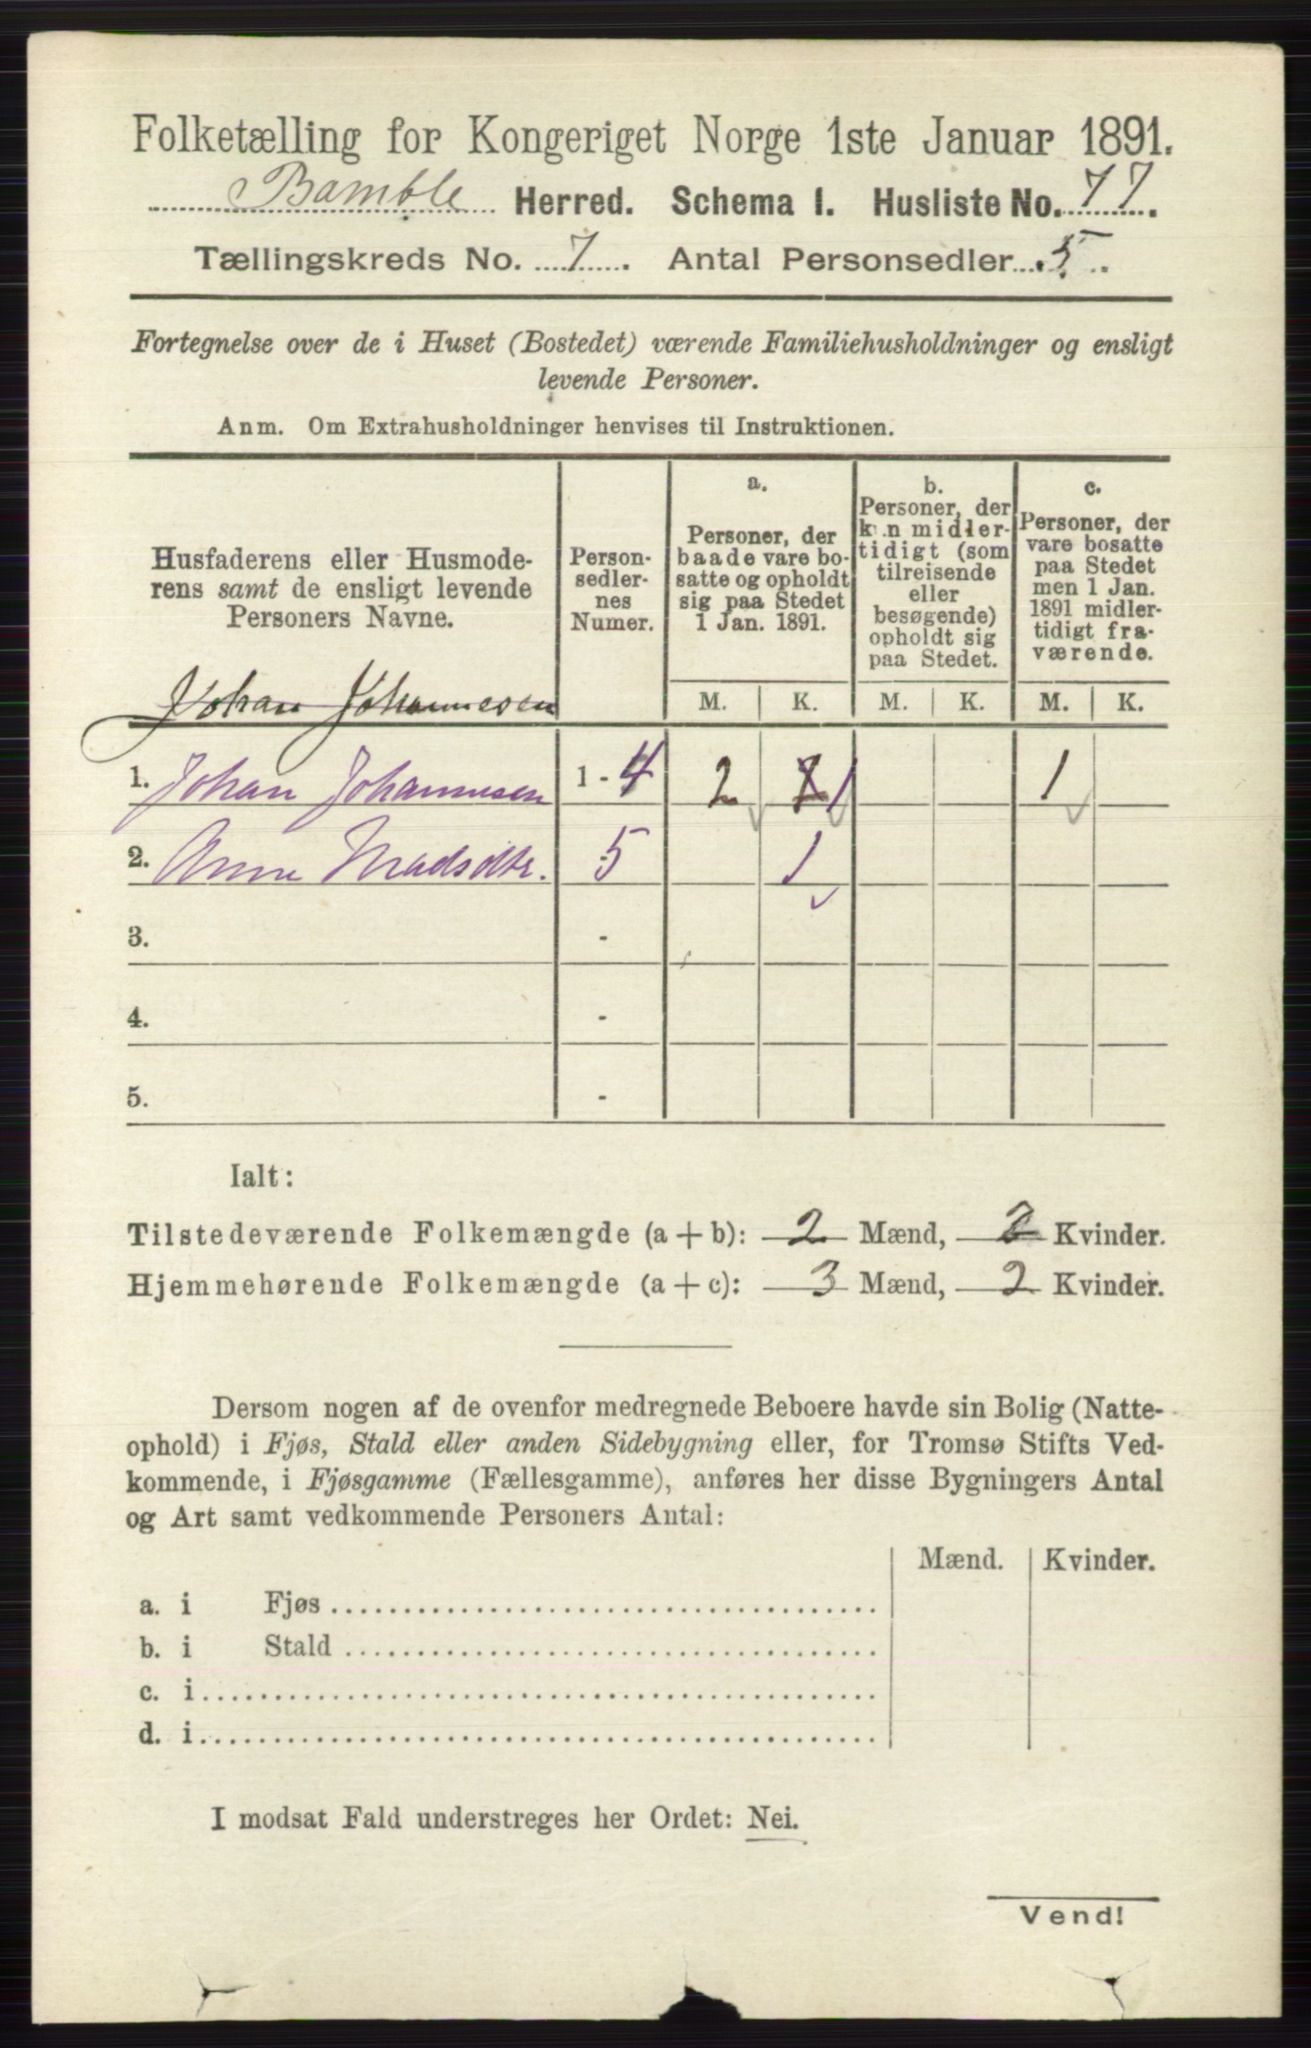 Folketælling for Kongeriget Norge 1ste Januar 1891.
Bamble Herred. Schema I. Husliste No. 77.
Tællingskreds No. 7. Antal Personsedler 5.
Fortegnelse over de i Huset (Bostedet) værende Familiehusholdninger og ensligt
levende Personer.
Anm. Om Extrahusholdninger henvises til Instruktionen.
Husfaderens eller Husmode-
rens samt de ensligt levende
Personers Navne.
Johan Johannesen
Person-
sedler-
nes
Numer.
a.
Personer, der
baade vare bo-
satte og opholdt
sig paa Stedet
1 Jan. 1891.
b.
Personer, der
kun midler-
tidigt (som
tilreisende
eller
besøgende)
opholdt sig
paa Stedet.
c.
Personer, der
vare bosatte
paa Stedet
men 1 Jan.
1891 midler-
tidigt fra-
værende.
M. K. M. K. M. K.
1. Johan Johannesen 1 - 4 2 1 1
2. Anne Madsdtr. 5 1
3. -
4. -
5. -
Ialt:
Tilstedeværende Folkemængde (a + b): 2 Mænd, 2 Kvinder.
Hjemmehørende Folkemængde (a + c): 3 Mænd, 2 Kvinder.
Dersom nogen af de ovenfor medregnede Beboere havde sin Bolig (Natte-
ophold) i Fjøs, Stald eller anden Sidebygning eller, for Tromsø Stifts Ved-
kommende, i Fjøsgamme (Fællesgamme), anføres her disse Bygningers Antal
og Art samt vedkommende Personers Antal:
Mænd. Kvinder.
a. i Fjøs
b. i Stald
c. i
d. i
I modsat Fald understreges her Ordet: Nei.
Vend!